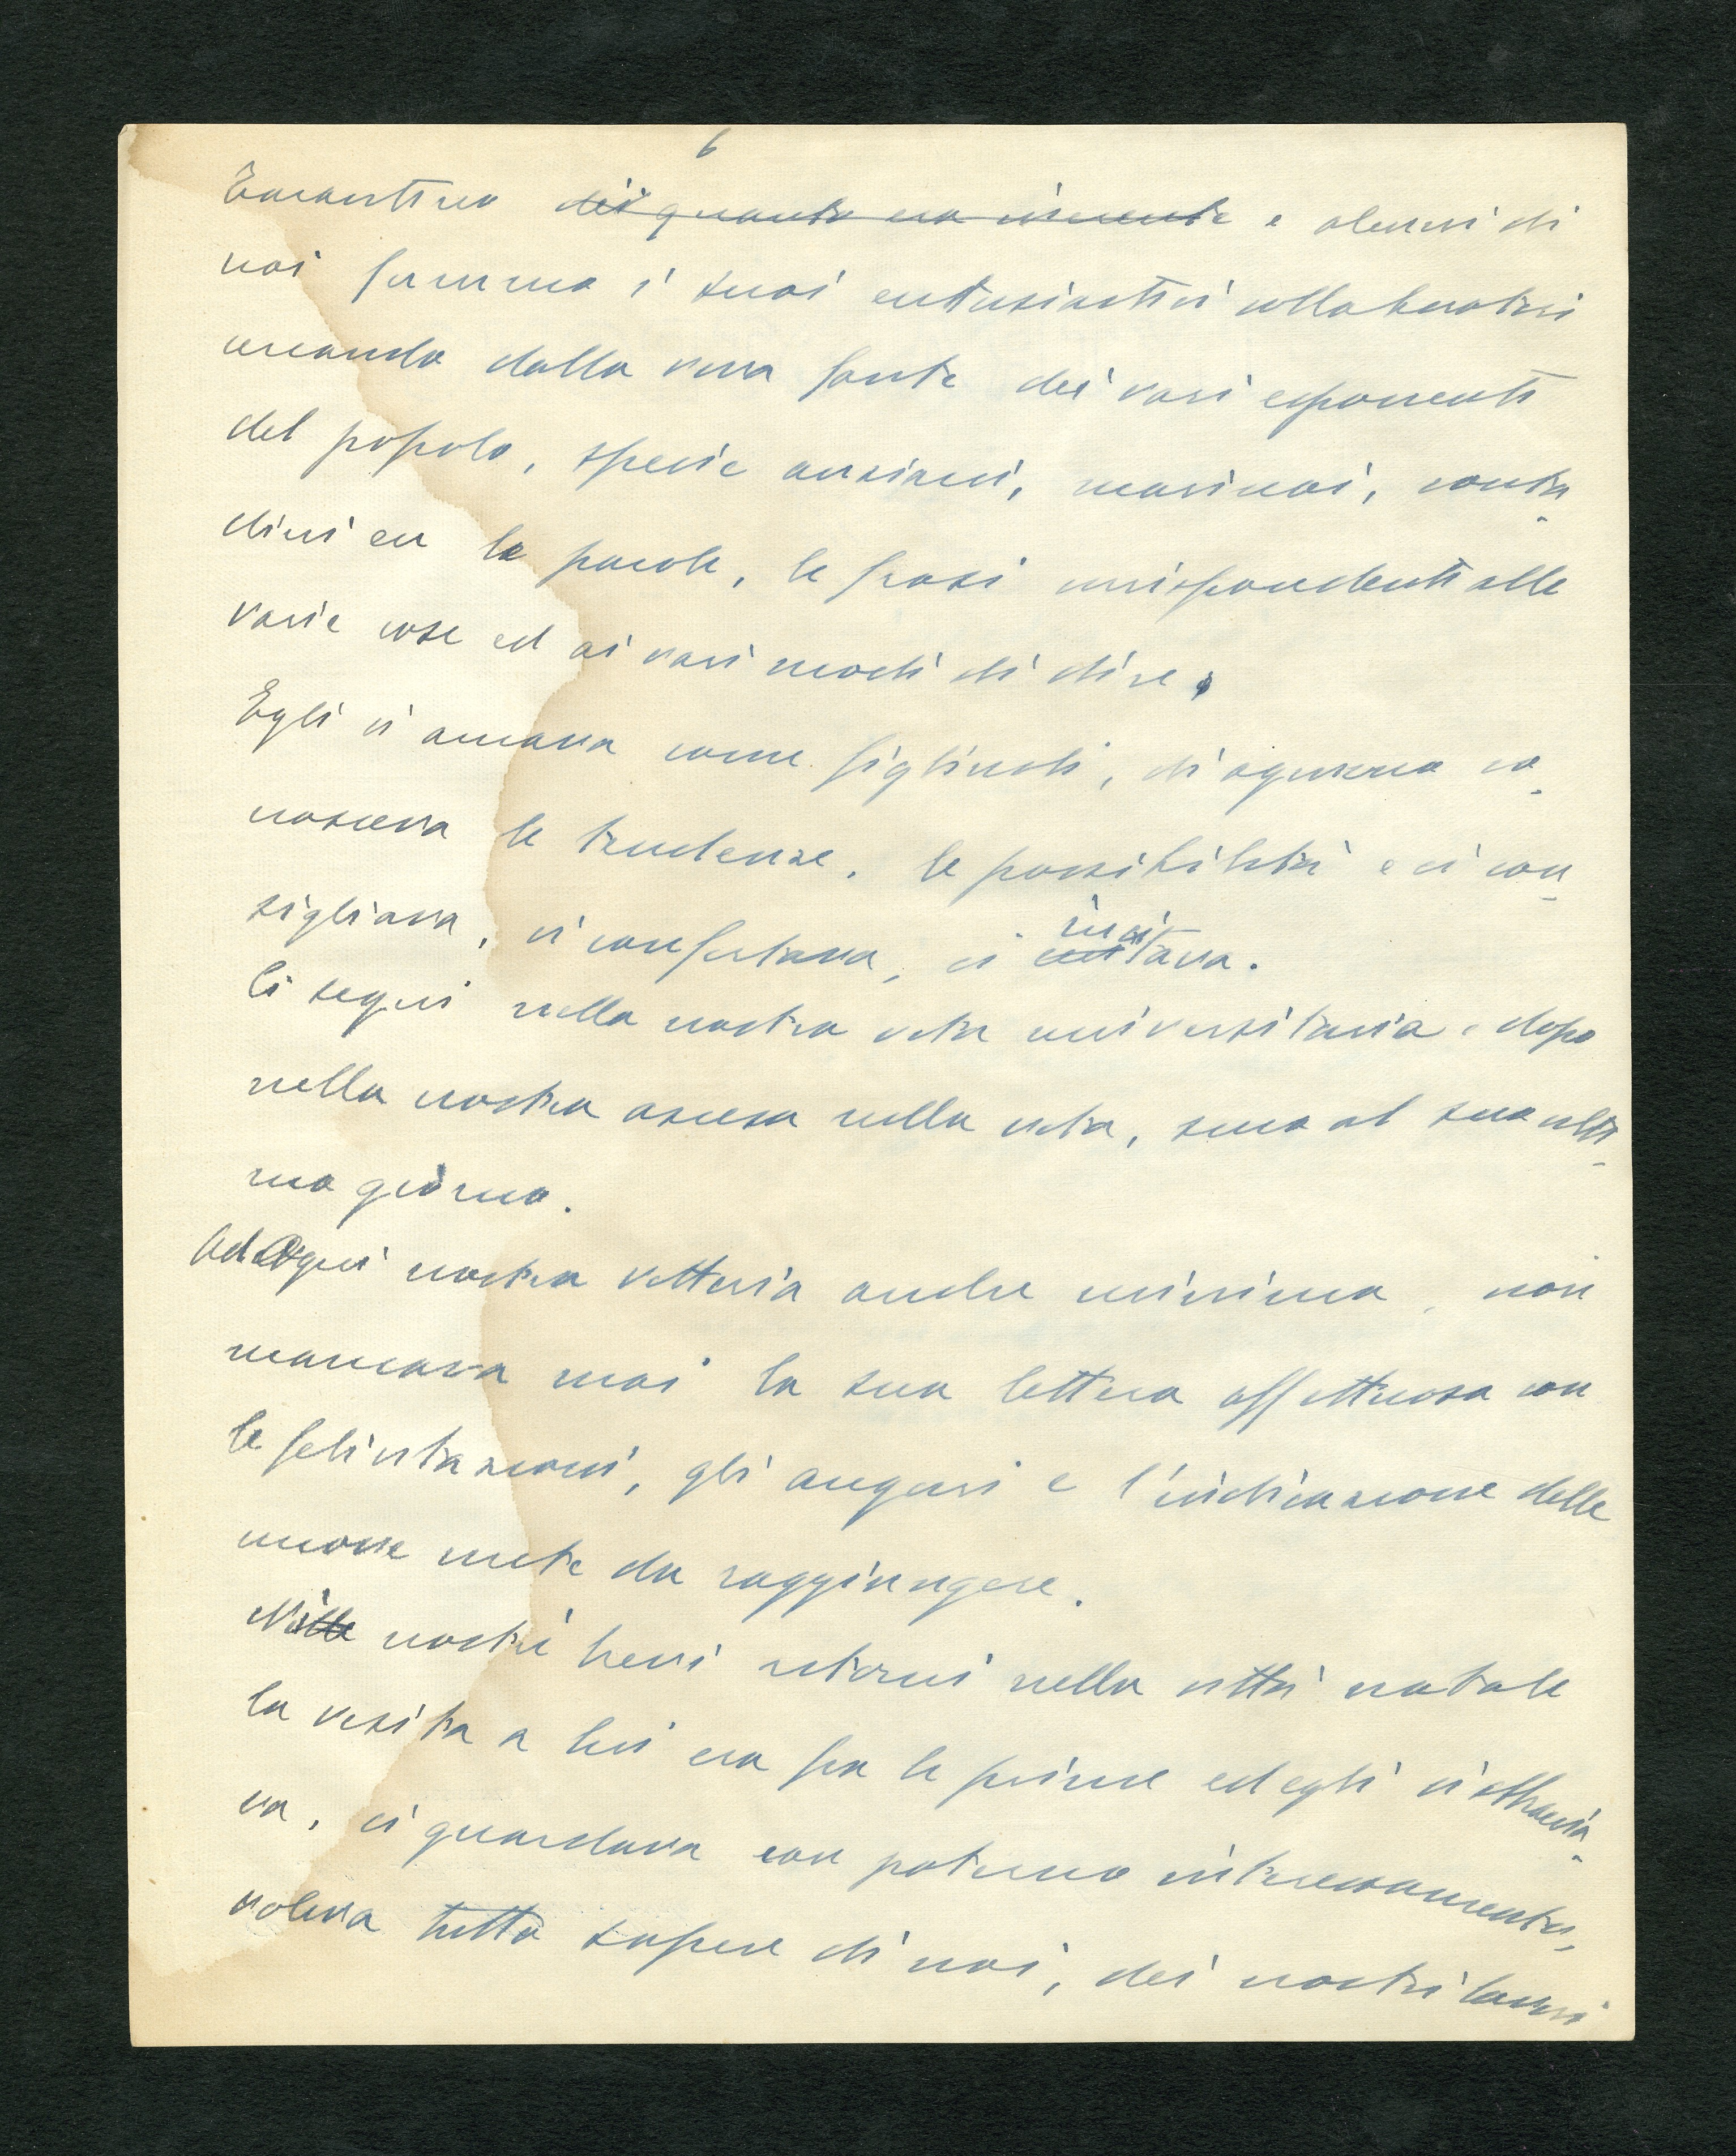 6
Tarantino dei quanto era inerente e alcuni di
noi fummo i suoi entusiastici collaboratori
cercando dalla viva fonte dei vari esponenti
del popolo, specie anziani, marinai, conta-
dini ecc le parole, le frasi corrispondenti alle
varie cose ed ai vari modi di dire.
Egli ci amava come figliuoli, di ognuno co-
nosceva le tendenze, le possibilità e ci con-
sigliava, ci confortava, ci incitava.
Ci seguì nella nostra vita universitaria e dopo
nella nostra ascesa nella vita, sino al suo ulti-
mo giorno.
Ad Ogni nostra vittoria anche minima, non
mancava mai la sua lettera affettuosa con
le felicitazioni, gli auguri e l'indicazione delle
nuove mete da raggiungere.
Nei nostri brevi ritorni nella città natale
la visita a lui era fra le prime ed egli ci abbraccia-
va, ci guardava con paterno interessamento,
voleva tutto sapere di noi, dei nostri lavori